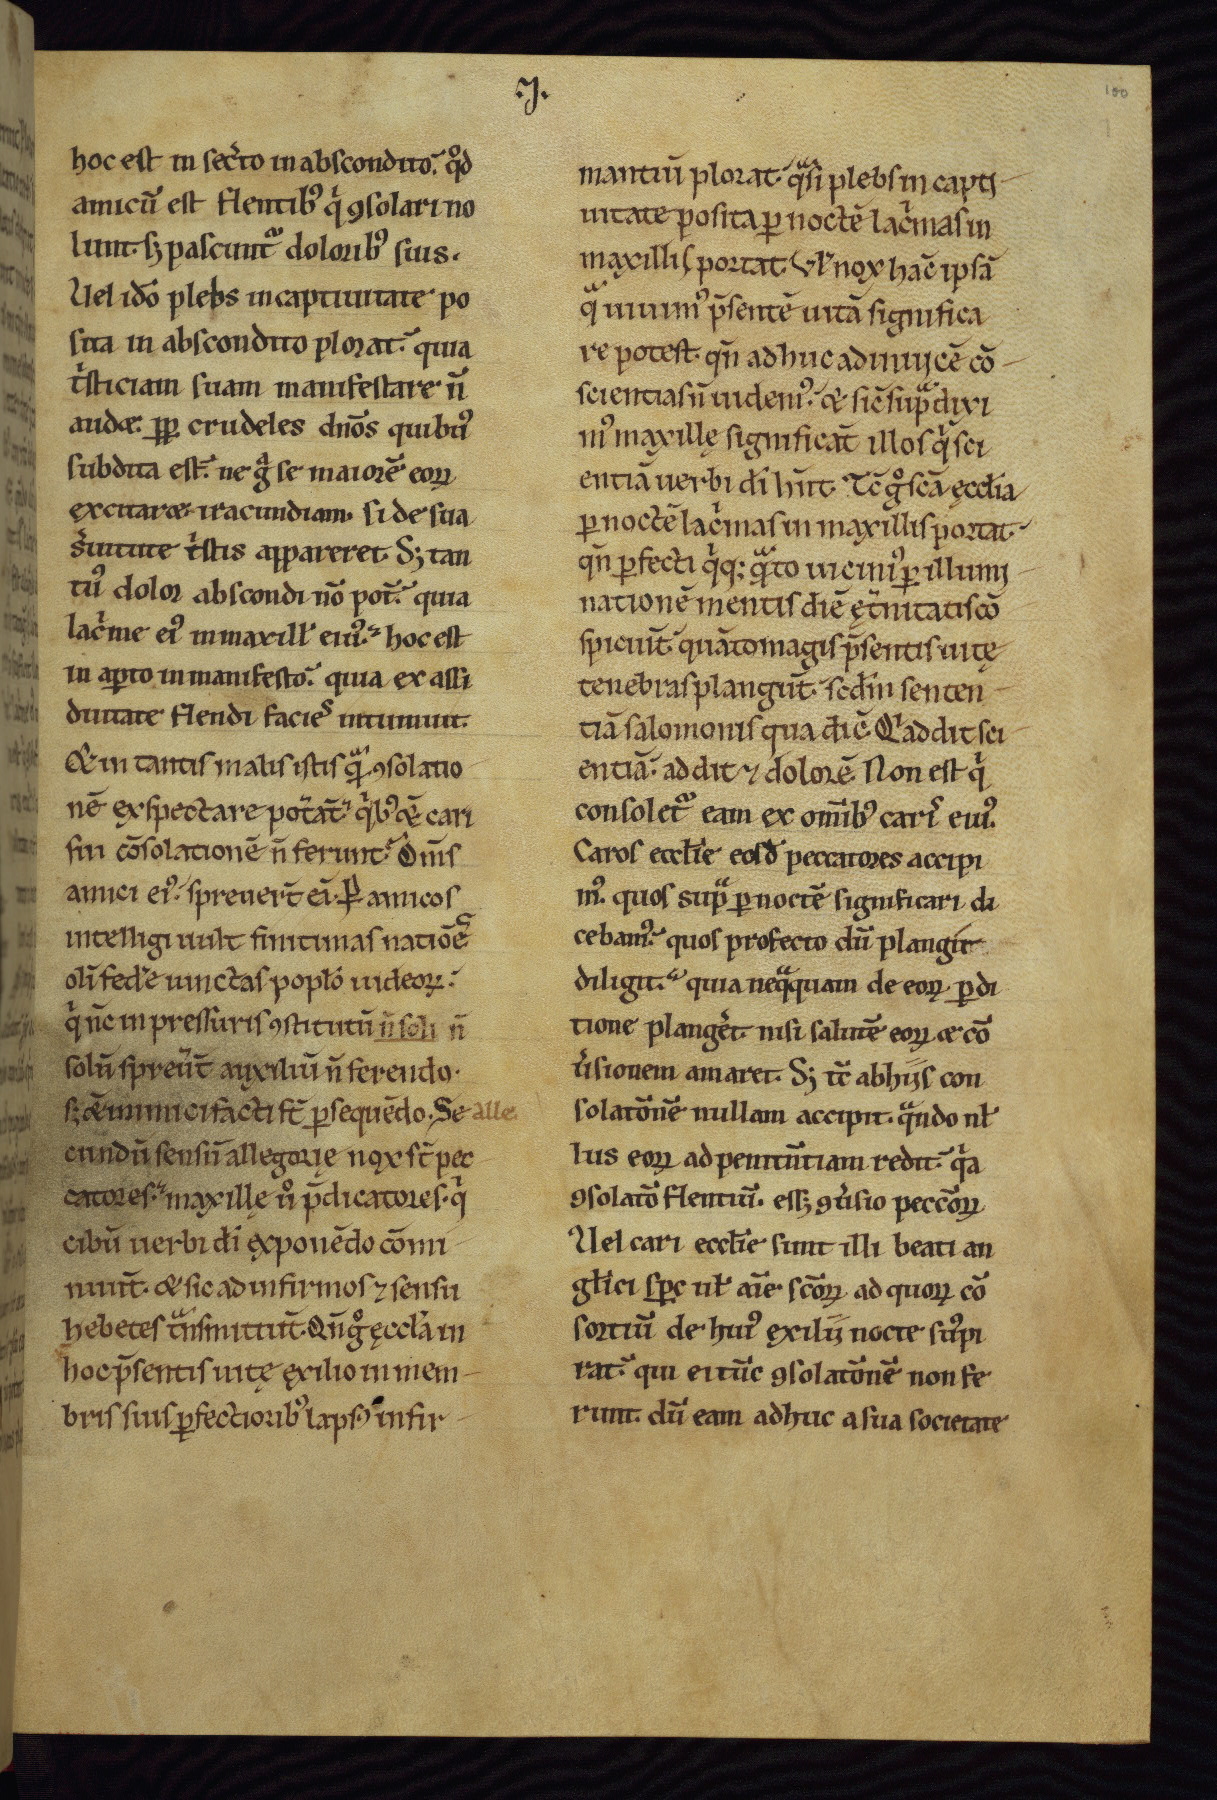 ·I·
100
hoc est in sec̓to in abscondito. qͦd
amicū est flentibꝰ qͥ ꝯsolari no
lunt. sꝫ pascuntᷓ doloribꝰ suis.
Uel idō plebs in captiuitate po
sita in abscondito plorat. quia
tͥsticiam suam manifestare n̄
audet. ꝓpͭ crudeles dn̄os quibꝰ
subdita est. ne gᷓ se maiorē eoꝝ
excitaret iracundiam. si de sua
s̓uitute tͥstis appareret. Sꝫ tan
tꝰ dolor abscondi nō pot̄. quia
lac̓me eiꝰ in maxill' eiuꝰ. hoc est
in aꝑto in manifesto. quia ex assi
duitate flendi facies intumuit.
Et in tantis malis istis qᷓ ꝯsolatio
nē exspectare pot̓at. qͥbꝰ et̄ cari
sui cōsolationē n̄ ferunt. Om̄s
amici eiꝰ spreuer̄t eā. Ꝑ amicos
intelligi uult finitimas natiōes
olī fed'e uinctas poplo iudeoꝝ.
qͥ nc̄ in pressuris ꝯstitutū n̄ soli n̄
solū spreu̓t auxiliū n̄ ferendo.
sꝫ et̄ inimici facti st̄ ꝑsequēdo. Se alle
cundū sensū allegorię nox st̄ pec
catores. maxillę uͦ p̄dicatores. qͥ
cibū uerbi di exponēdo cōmi
nuūt. et sic ad infirmos ⁊ sensu
hebetes tᷓnsmittūt. Qn̄ gͦ ęccl'a in
hoc p̄sentis uitę exilio in mem-
bris suis ꝑfectioribꝰ lapsꝰ infir-
mantiū plorat. qᷓsi plebs in capti-
uitate posita ꝑ noctē lac̓mas in
maxillis portat. Ul' nox hāc ipsā
qᷓ uiuimꝰ p̄sentē uitā significa
re potest. qn̄ adhuc ad inuicē cō-
scientias n̄ uidemꝰ. et sic̄ supᷓ dixi
mꝰ maxillę significāt illos qͥ sci
entiā uerbi di hn̄t. Tc̄ gͦ scā ęccl'ia
ꝑ noctē lac̓mas in maxillis portat.
qn̄ ꝑfecti qͥqꝫ qᷓto uiciniꝰ ꝑ illumi-
nationē mentis diē ęt̓nitatis cō
spiciūt. quāto magis p̄sentis uitę
tenebras plangūt. scdm senten-
tiā salomonis qua dic̄. Q̄ addit sci-
entiā. addit ⁊ dolorē. Non est qͥ
consoletᷓ eam ex om̄ibꝰ caris eiuꝰ.
Caros eccl'ie eosd̄ peccatores accipi
mꝰ. quos supᷓ ꝑ noctē significari di
cebamꝰ. quos profecto dū plangit
diligit. quia neqᷓquam de eoꝝ ꝑdi
tione plang̓et. nisi salutē eoꝝ et cō
u̓sionem amaret. Sꝫ tc̄ ab hijs con
solatōnē nullam accipit. qᷓndo nl'
lus eoꝝ ad penitn̄tiam redit. qͥa
ꝯsolatō flentiū. essꝫ ꝯu̓sio peccōꝝ.
Uel cari eccl'ie sunt illi beati an
gl'ici spc ul' aīe scōꝝ ad quoꝝ cō
sortiū de huiꝰ exilij nocte suspi
rat. qui ei tūc ꝯsolatōnē non fe
runt. dū eam adhuc a sua societate